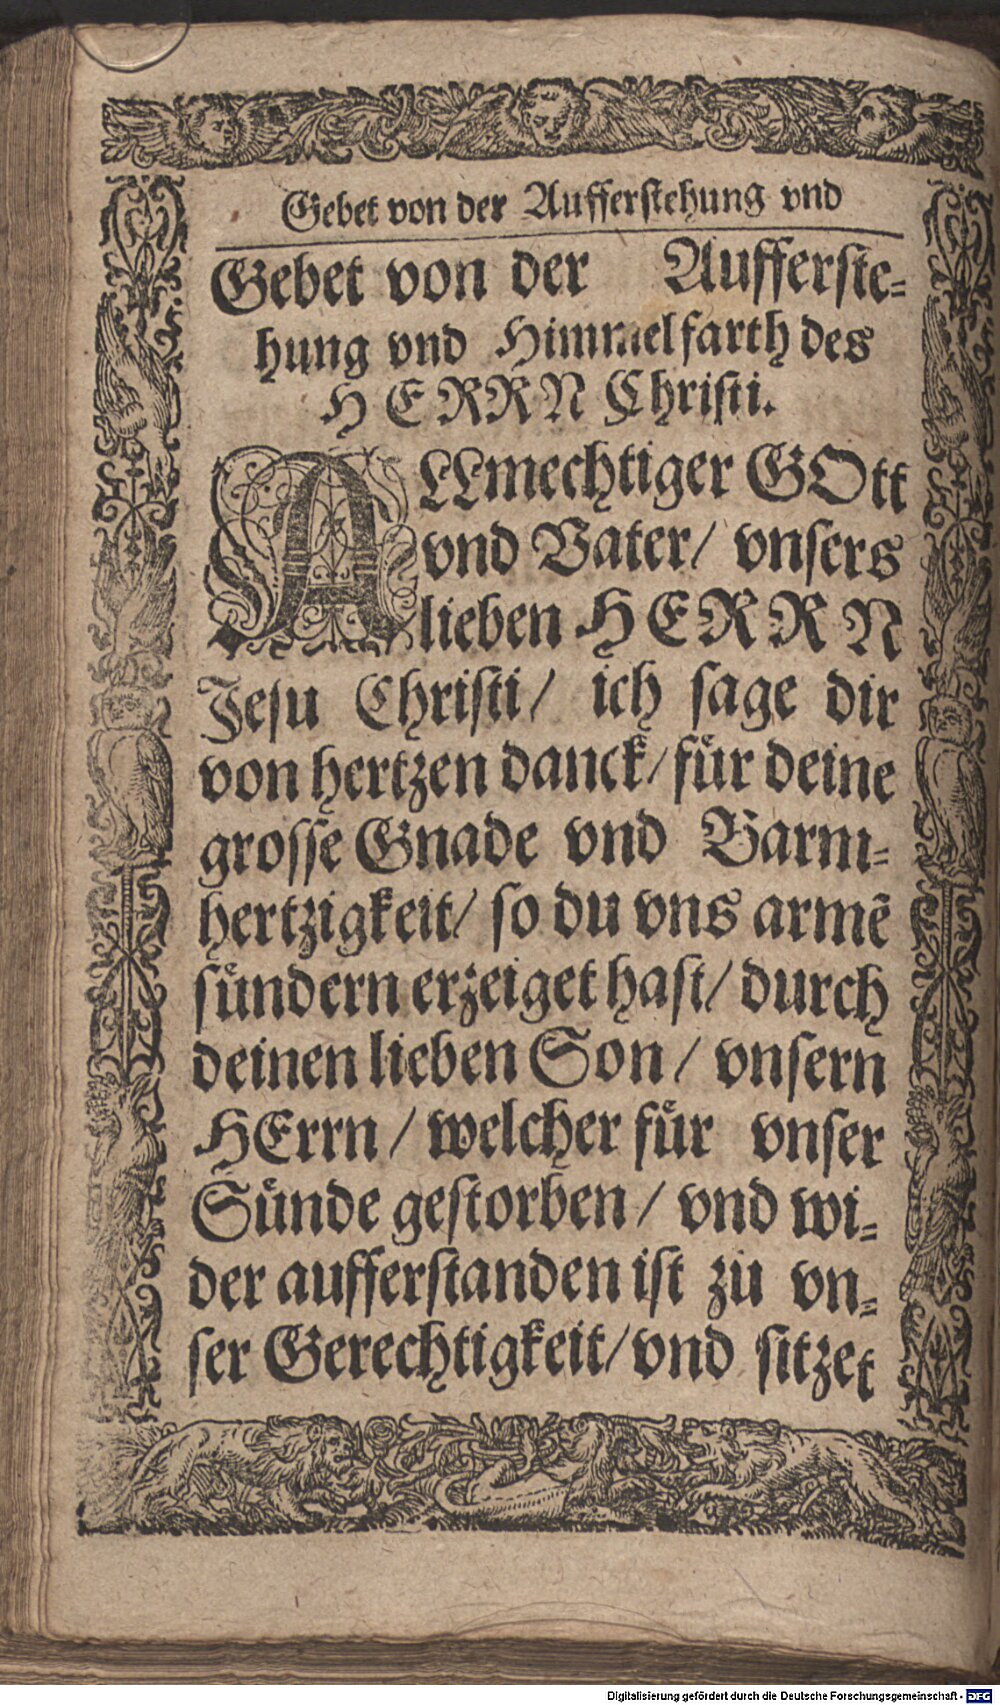 Gebet von der Aufferstehung vnd
Gebet von der Aufferste-
hung vnd Himmelfarth des
HERRN Christi.
ALLmechtiger GOtt
vnd Vater/ vnsers
lieben HERRN
Jesu Christi/ ich sage dir
von hertzen danck/ fuͤr deine
grosse Gnade vnd Barm-
hertzigkeit/ so du vns armẽ
suͤndern erzeiget hast/ durch
deinen lieben Son/ vnsern
HErrn/ welcher fuͤr vnser
Suͤnde gestorben/ vnd wi-
der aufferstanden ist zu vn-
ser Gerechtigkeit/ vnd sitzet
Digitalisierung gefördert durch die Deutsche Forschungsgemeinschaft - DFG